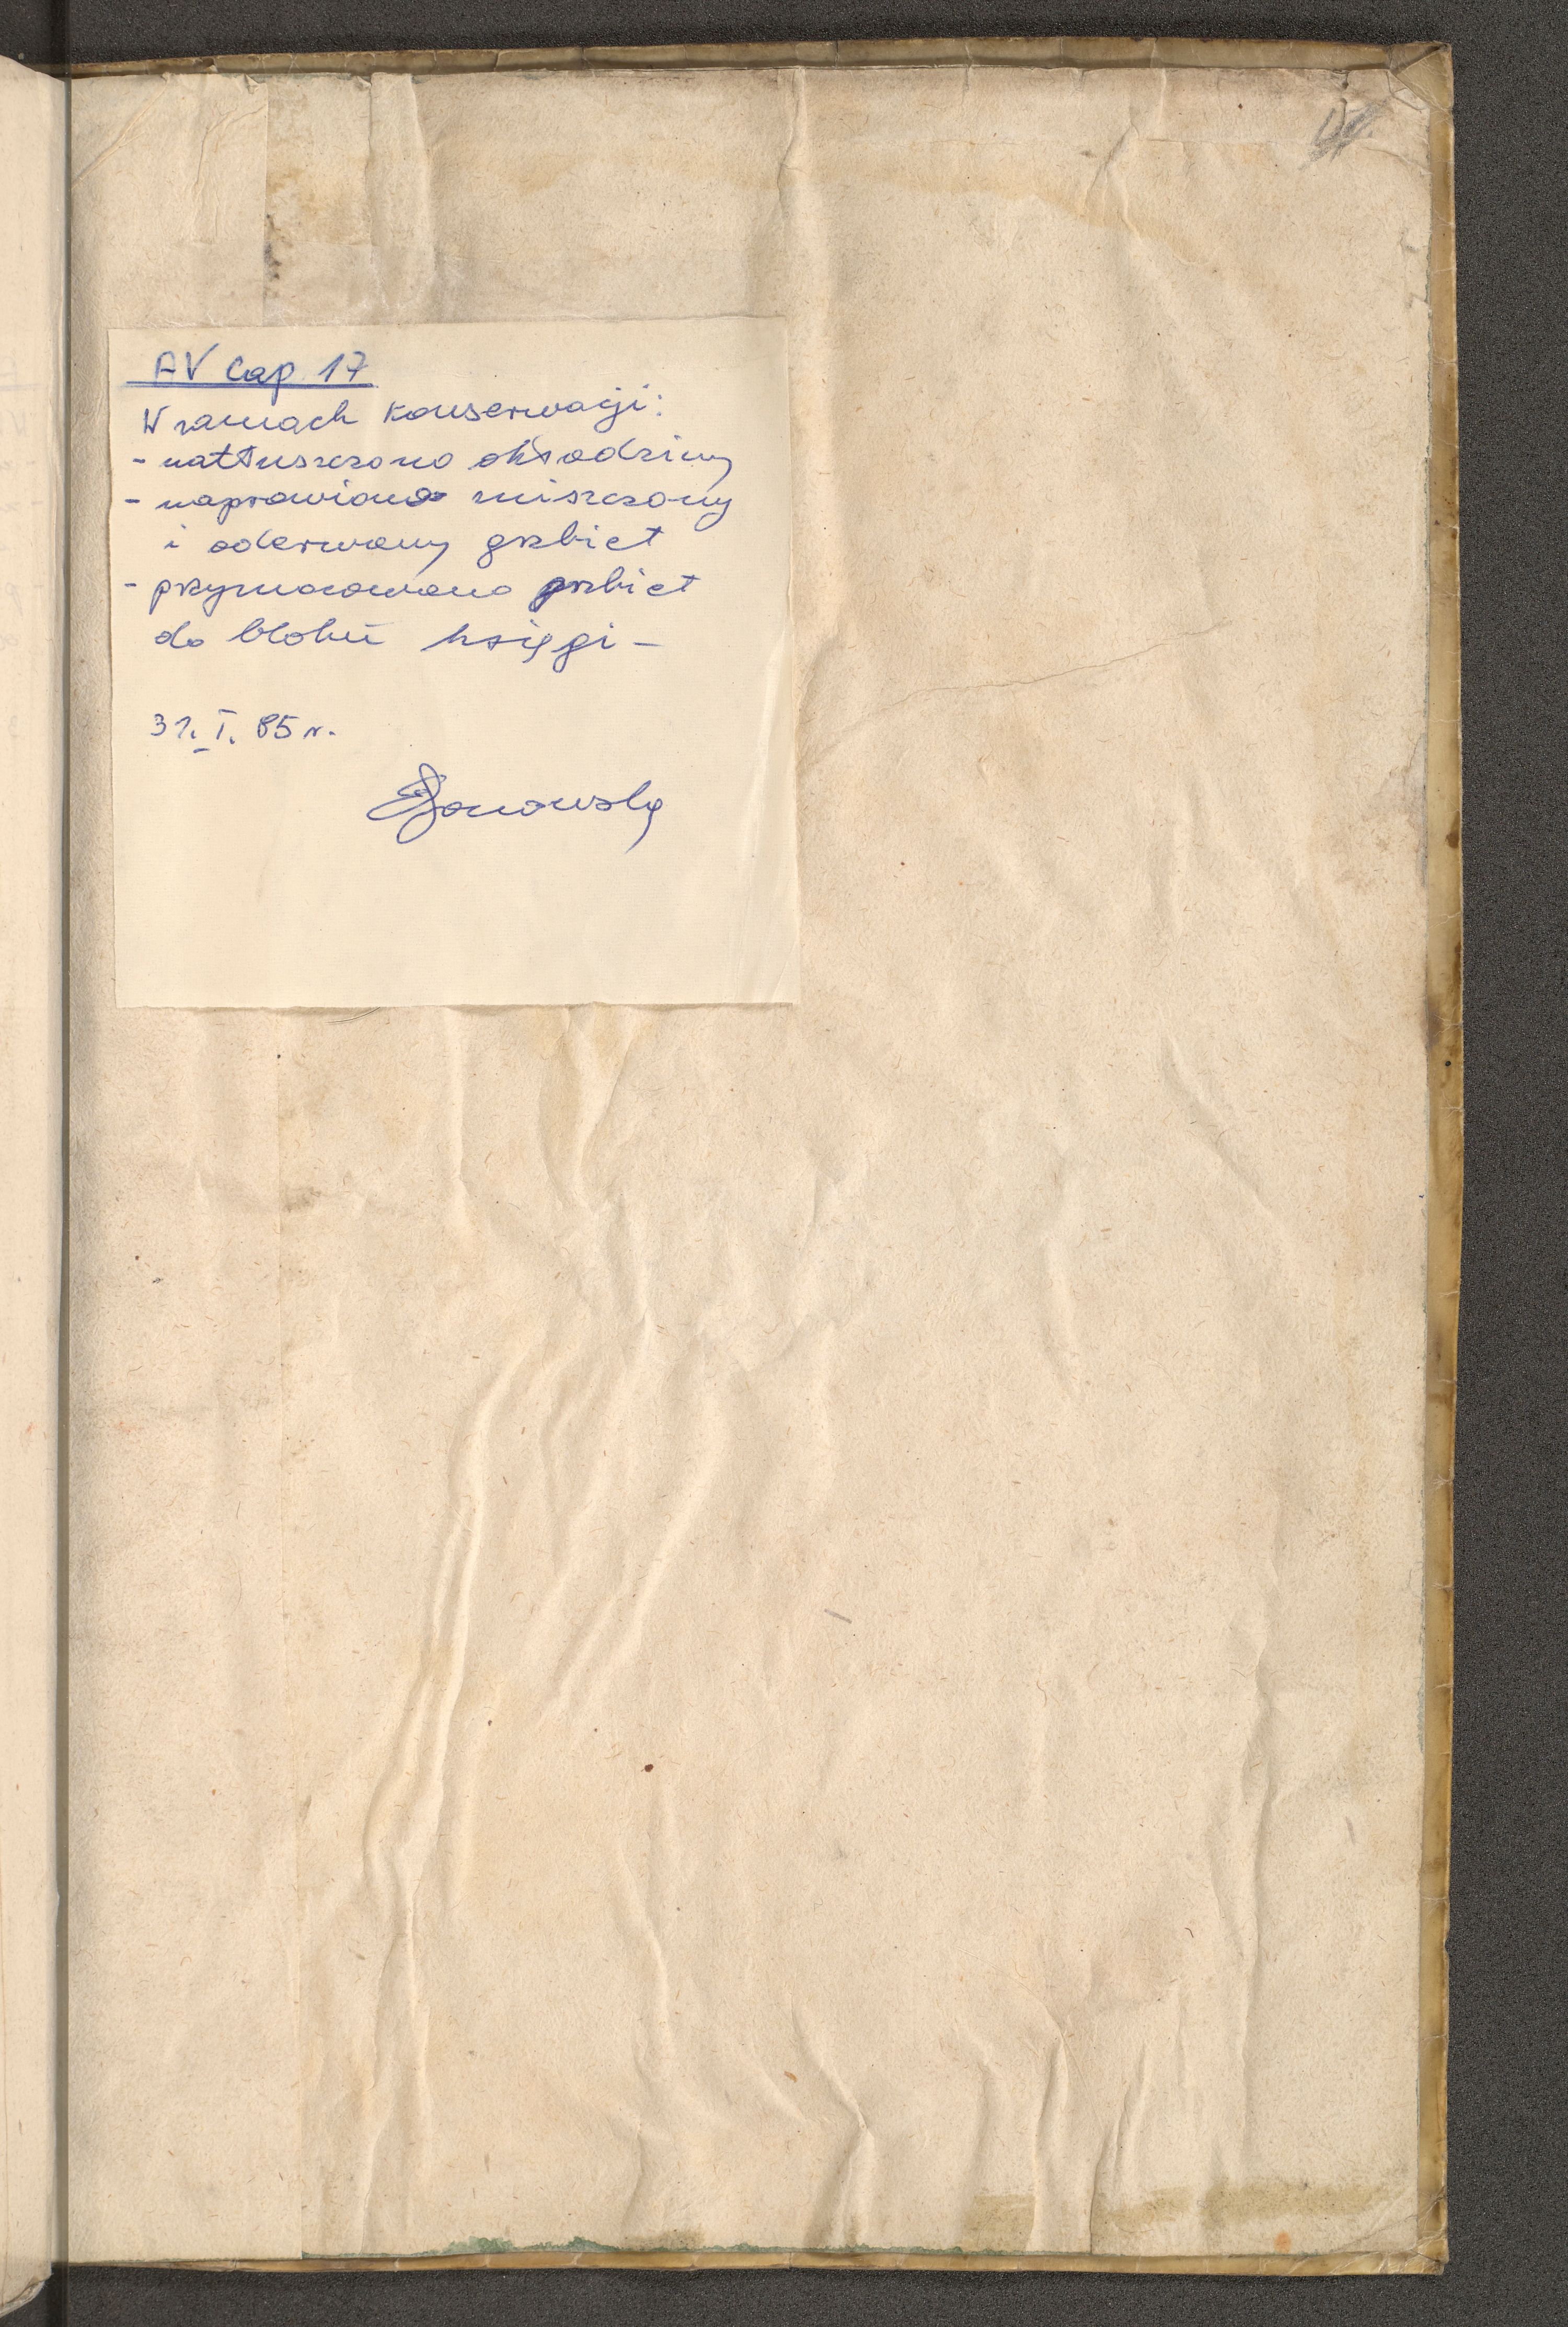 AV Cap 17
W ramach konserwacji:
- natłuszczono okładziny
- naprawiono zniszczony
i oderwany grzbiet
- przymocowano grzbiet
do bloku księgi -
31. I. 85 r.